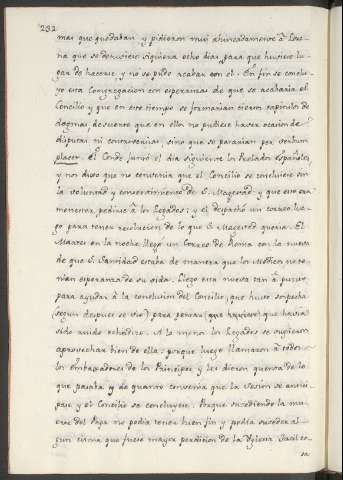 232
mas que quedaban y pidieron muy ahincadamente à Lore-
na que se detuviese siquiera ocho dias para que hubiese lu-
gar de hacerse y no se pudo acabar con el. En fin se conclu-
yo esta Congregacion con esperanzas de que se acabaria el
Concilio y que en este tiempo se formarian ciertos capitulos de
dogmas, de suerte que en ellos no pudiese haver ocasion de
disputar ni controversias, sino que se pasarian per verbum
placet. El Conde juntó el dia siguiente los Prelados Españoles
y nos dixo que no convenia que el Concilio se concluiese sin
la voluntad y consentimiento de S. Magestad y que eso era
menester pedirse à los Legados; y el despachó un correo lue-
go para tener resolucion de lo que S. Magestad queria. El
Martes en la noche llegó un Correo de Roma con la nueva
de que S. Santidad estaba de manera que los Medicos no te-
nian esperanza de su vida. Llegó esta nueva tan à punto
para ayudar à la conclusion del Concilio, que hubo sospecha
(segun despues se vio) para pensar (que hubiese) que havia
sido ardid echadizo. A lo menos los Legados se supieron
aprovechar bien de ella: porque luego llamaron à todos
los Embaxadores de los Principes y les dieron quenta de lo
que pasaba y de quanto convenia que la sesion se antici-
pase y el Concilio se concluyese. Porque sucediendo la mu-
erte del Papa no podia tener buen fin y podia suceder al-
gun cisma que fuese mayor perdicion de la Yglesia. Facil co-
sa